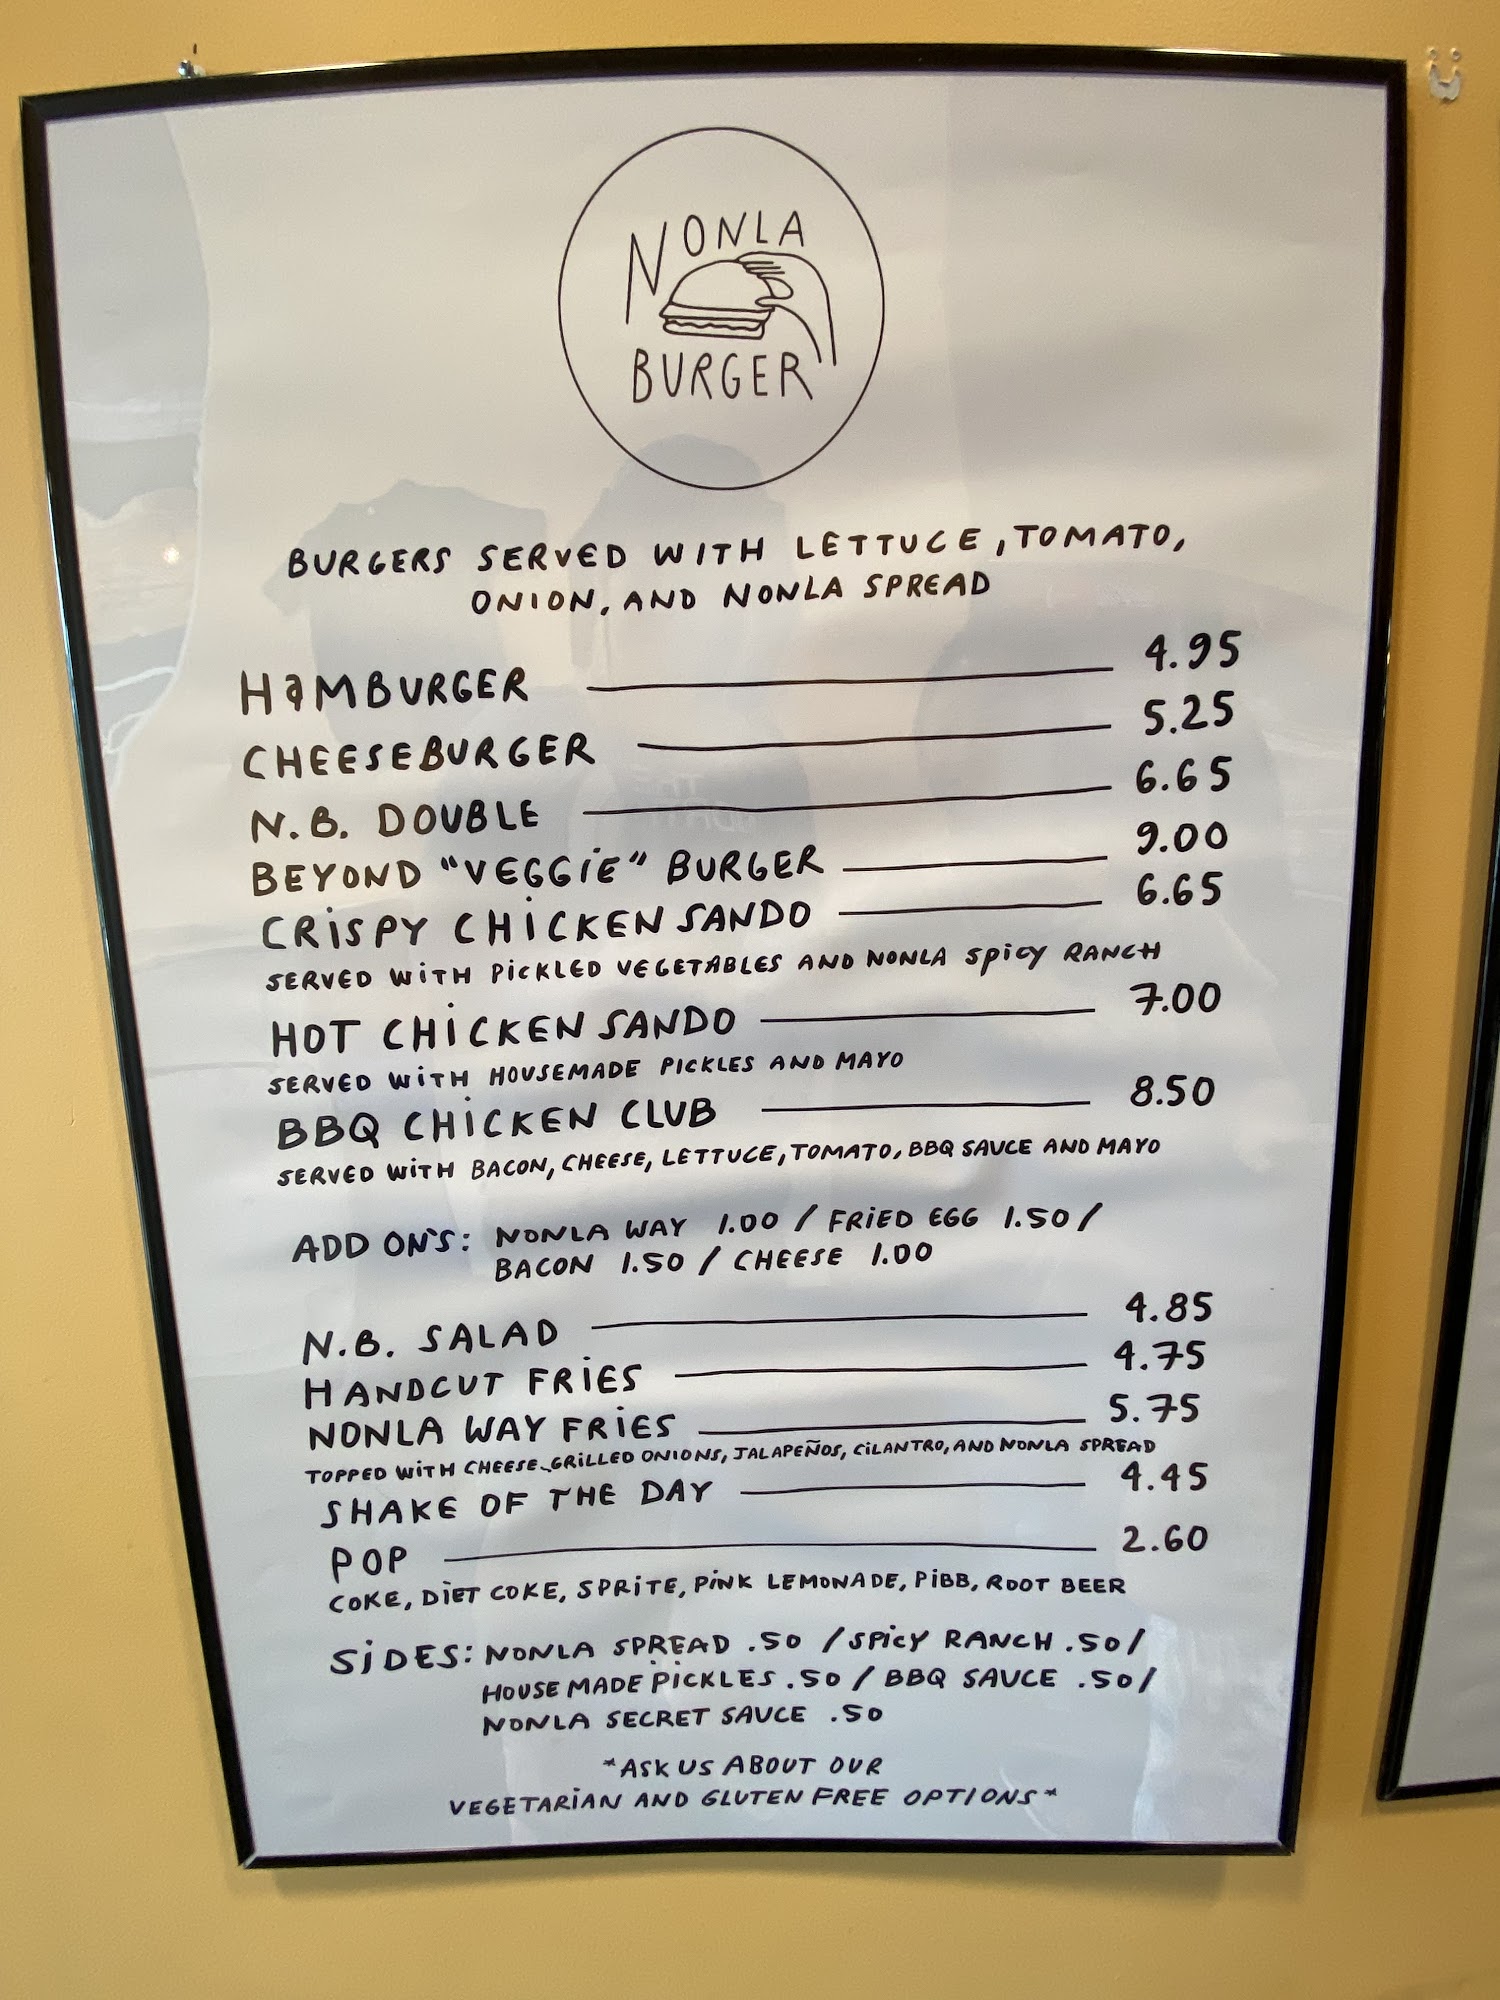 NONLA
BURGER
BURGERS SERVED WITH LETTUCE, TOMATO,
ONION, AND NONLA SPREAD
HAMBURGER 4.95
CHEESEBURGER 5.25
N.B. DOUBLE 6.65
BEYOND "VEGGiE" BURGER 9.00
CRiSPY CHiCKEN SANDO 6.65
SERVED WiTH PiCKLED VEGETABLES AND NONLA SPiCY RANCH
HOT CHiCKEN SANDO 7.00
SERVED WiTH HOUSEMADE PICKLES AND MAYO
BBQ CHiCKEN CLUB 8.50
SERVED WiTH BACON, CHEESE, LETTUCE, TOMATO, BBQ SAUCE AND MAYO
ADD ON'S: NONLA WAY 1.00 / FRiED EGG 1.50 /
BACON 1.50 / CHEESE 1.00
N.B. SALAD 4.85
HANDCUT FRiES 4.75
NONLA WAY FRiES 5.75
TOPPED WiTH CHEESE, GRiLLED ONIONS, JALAPEÑOS, CiLANTRO, AND NONLA SPREAD
SHAKE OF THE DAY 4.45
POP 2.60
COKE, DiET COKE, SPRiTE, PiNK LEMONADE, PiBB, ROOT BEER
SiDES: NONLA SPREAD .50 / SPiCY RANCH .50 /
HOUSE MADE PiCKLES .50 / BBQ SAUCE .50 /
NONLA SECRET SAUCE .50
*ASK US ABOUT OUR
VEGETARiAN AND GLUTEN FREE OPTIONS*